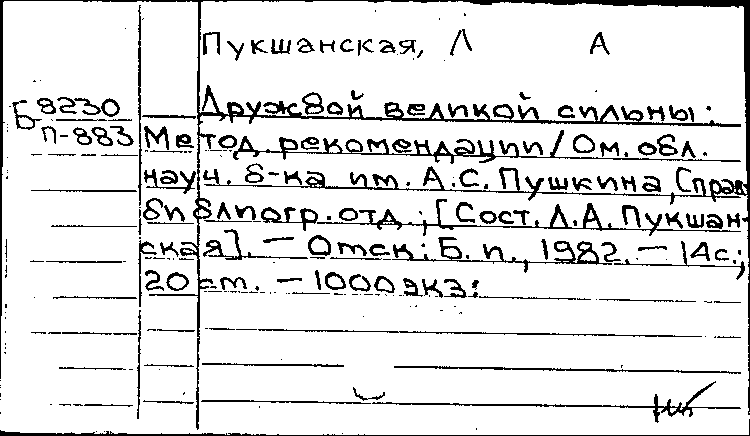 Пукшанская, Л А
Б 8230
П-883
Дружбой великой сильны:
Метод. рекомендации/Ом. обл.
науч. б-ка им. А.С. Пушкина, Справ.
библиогр. отд.; [Сост. Л.А. Пукшан-
ская]. — Омск: Б. и., 1982. — 14с.;
20 см. — 1000 экз.